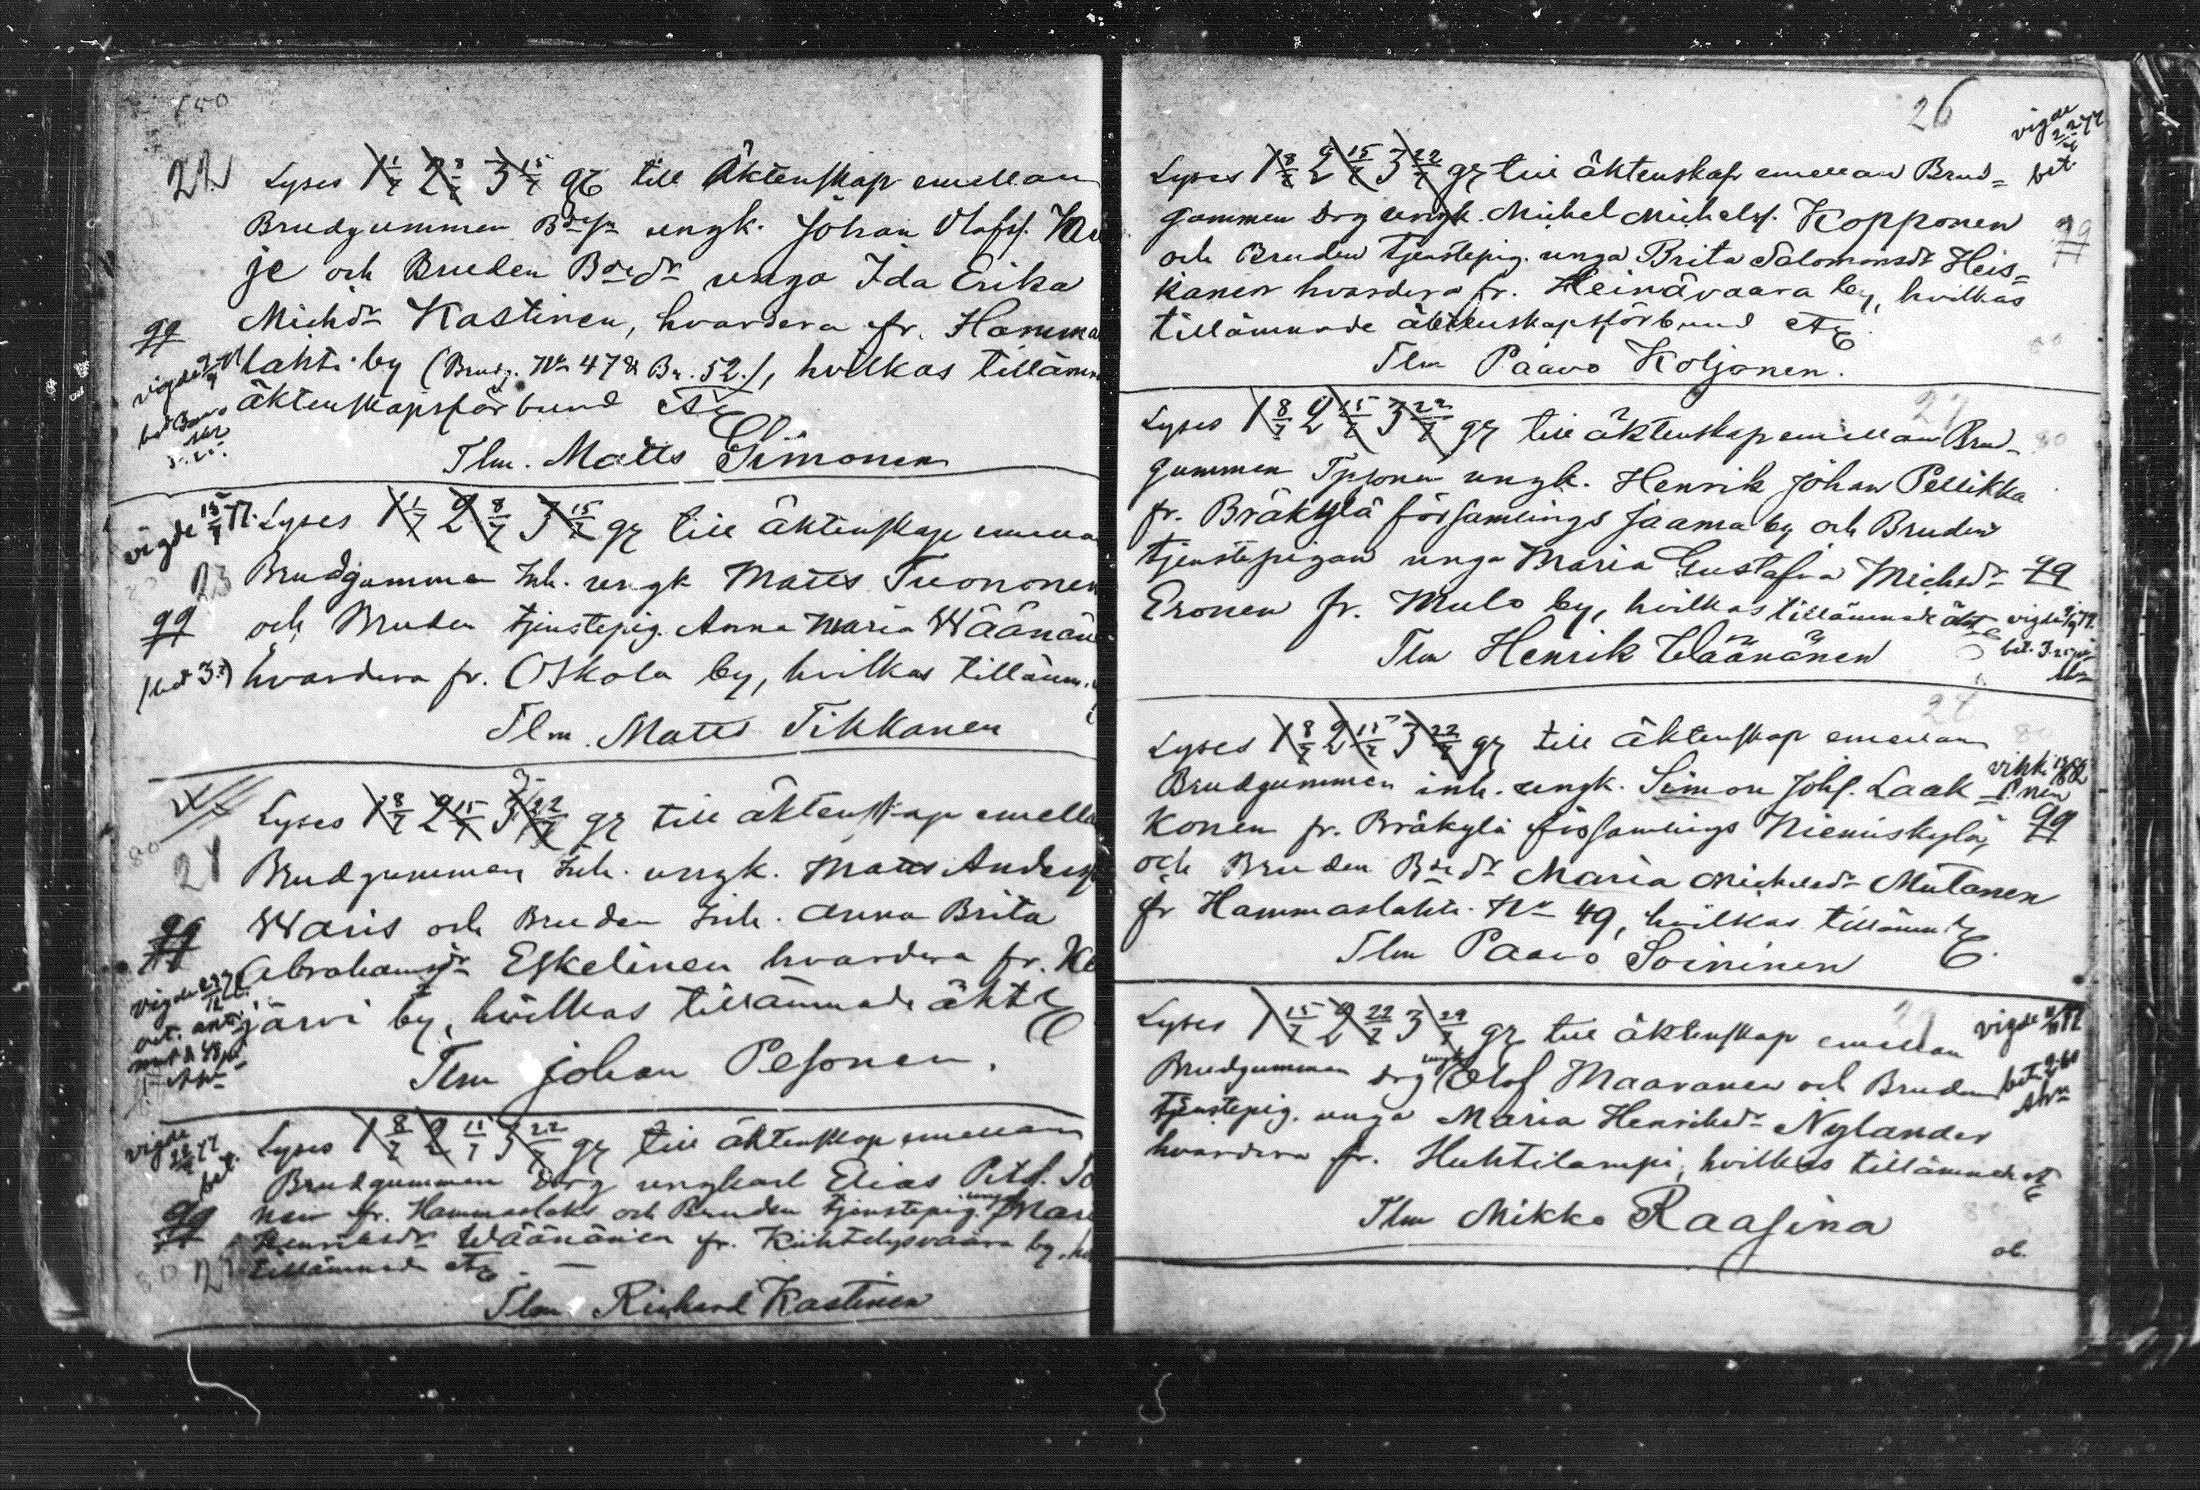 22
Lyses 1 1/7 2 8/7 3 15/7 gg till Äktenskap emellan
Brudgummen Bdesn ungk. Johan Olofss.
je och Bruden Bdedr unga Ida Erika
Michdr Kastinen, hvardera fr. Hamma
lahti by (Brudg. No 47 & Br. 52.), hvilkas tillämn
äktenskapsförbund etc
Tlm. Matts Simonen
vigde 15/7 77.
Lyses 1 1/7 2 8/7 3 15/7 gg till äktenskap emella
23
Brudgummen Inh. ungk Matts Tuononen
och Bruden tjenstepig. Anna Maria Wäänän
(bet 3:)
hvardera fr. Oskola by, hvilkas tilläm
Tlm. Matts Tikkanen
Lyses 1 8/7 2 15/7 3 22/7 gg till äktenskap emella
24
Brudgummen Inh. ungk. Matts Anders
Waris och Bruden Inh. Anna Brita
Abrahamsdr Eskelinen hvardera fr.
järvi by, hvilkas tillämnade äkt
Tlm Johan Pesonen.
vigde 77
bet.
Lyses 1 8/7 2 15/7 3 22/7 gg till äktenskap emellan
Brudgummen Drg ungkarl Elias Petf.
nen fr. Hammaslaht och Bruden tjenstepig. unga Mari
Henriksdr Wäänänen fr. Kiihtelysvaara by,
tillämnade etc.
Tlm. Richard Kastinen
26
vigde
bet
Lyses 1 8/7 2 15/7 3 22/7 gg till äktenskap emellan Brud=
gummen Drg ungk. Michel Michelss. Kopponen
och Bruden tjenstepig. unga Brita Salomonsdr Heis=
kanen hvardera fr. Heinävaara by, hvilkas
tillämnade äktenskapsförbund etc.
Tlm Paavo Koljonen.
27
Lyses 1 8/7 2 15/7 3 22/7 gg till äktenskap emellan Brud-
gummen ungk. Henrik Johan Pellikka
fr. Bräkylä församlings Jaama by och Bruden
tjenstepigan unga Maria Gustafva Michsdr
Eronen fr. Mulo by, hvilkas tillämnade äkt
Tlm Henrik Wäänänen
28
Lyses 1 8/7 2 15/7 3 22/7 gg till äktenskap emellan
Brudgummen inh. ungk. Simon Johs. Laak=
konen fr. Bräkylä församlings Niemiskylä,
och Bruden Bdedr Maria Michelsdr Mutanen
fr Hammaslahti No 49, hvilkas tillämn etc.
Tlm Paavo Soininen
29
Lyses 1 15/7 2 22/7 3 29/7 gg till äktenskap emellan
Brudgummen Drg ungk Olof Maaranen och Bruden
tjenstepig. unga Maria Henriksdr Nylander
hvardera fr. Huhtilampi, hvilkas tillämnade etc
Tlm Mikko Raasina